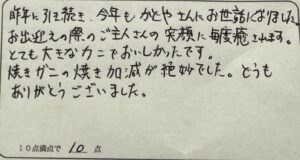 昨年に引き続き、今年もかどやさんにお世話になりました
お出迎えの際のご主人さんの笑顔に毎度癒されます。
とても大きなカニでおいしかったです。
焼きガニの焼き加減が絶妙でした。どうも
ありがとうございました。
10点満点で 10 点